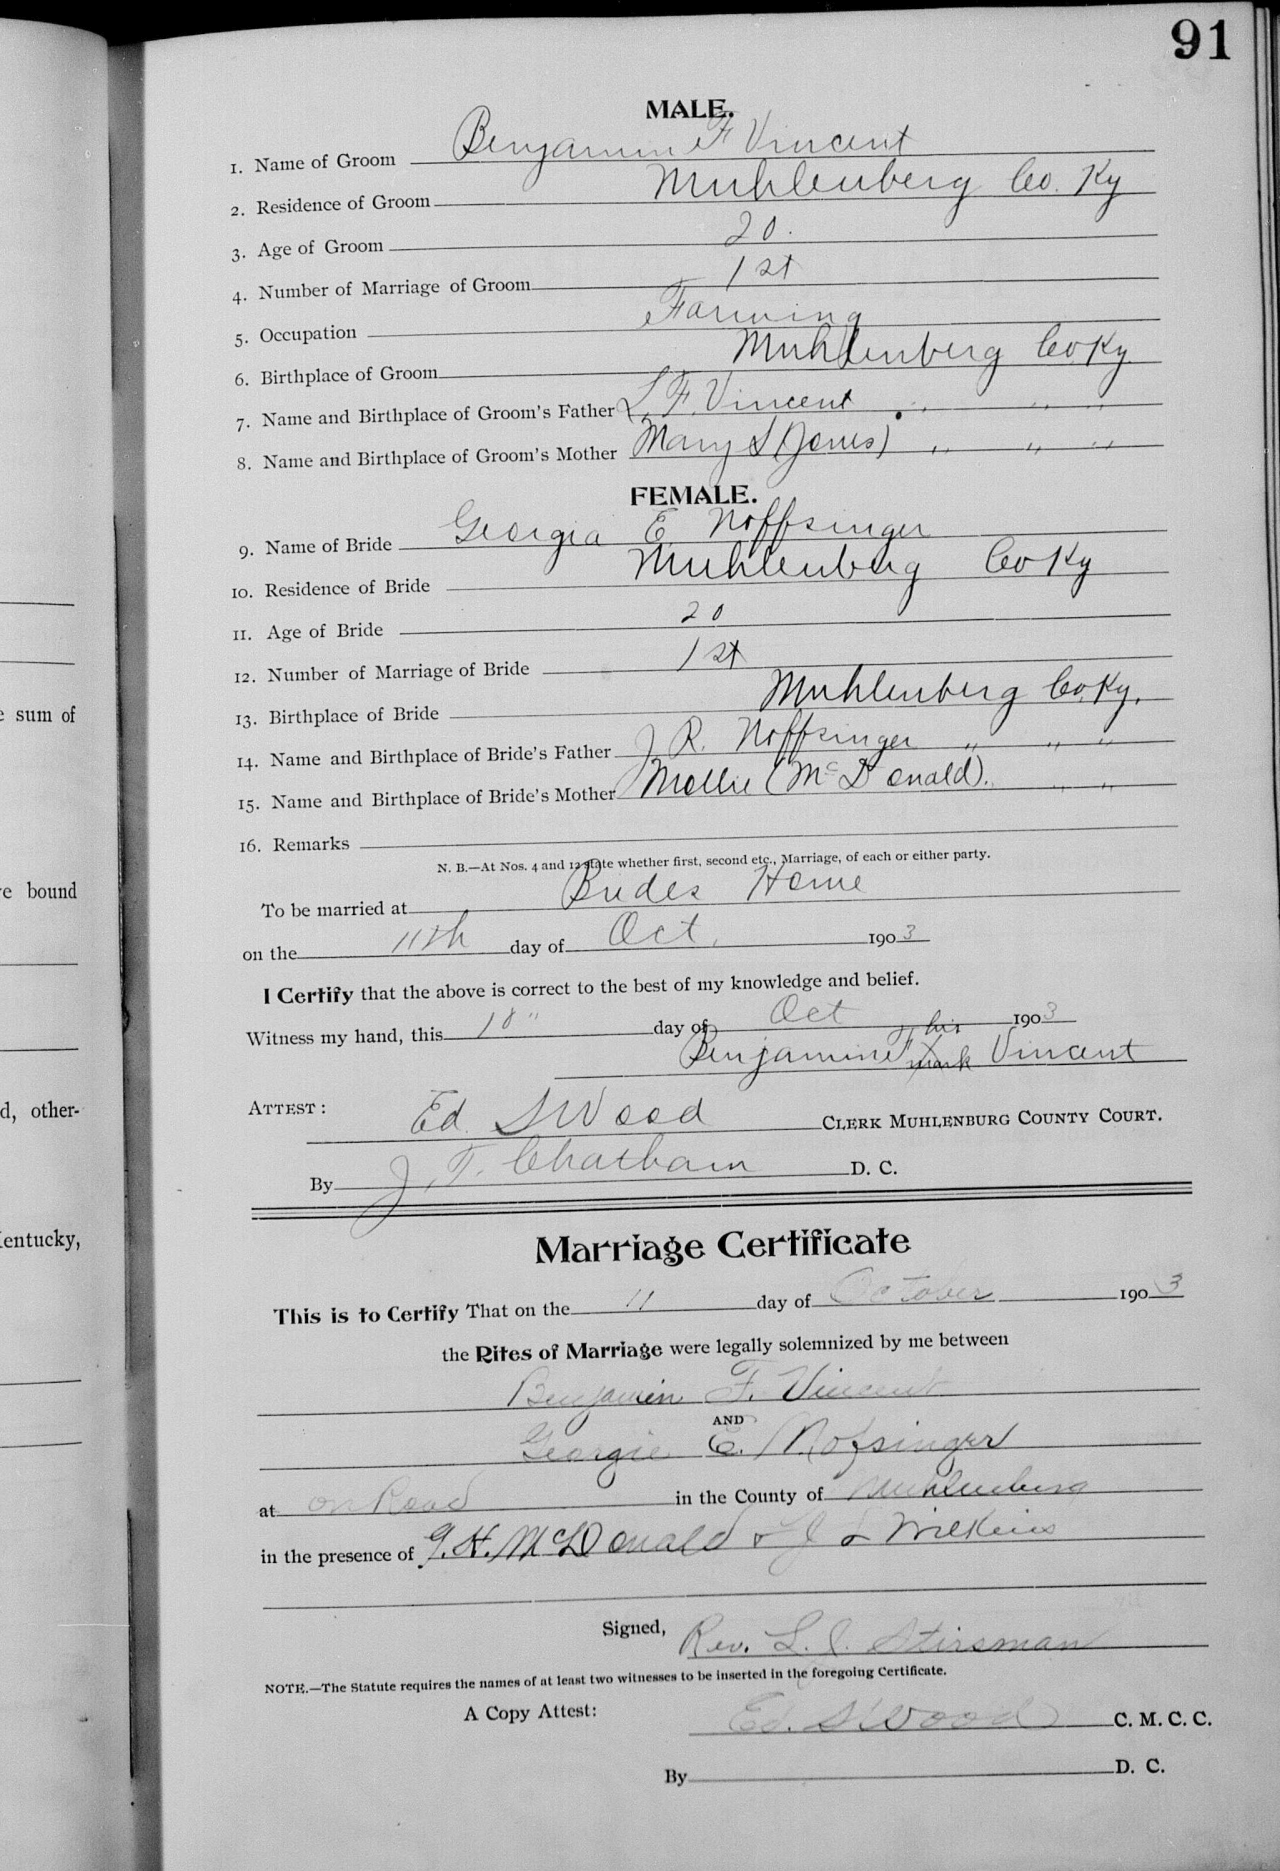 91
MALE.
1. Name of Groom Benjamin F Vincent
2. Residence of Groom Muhlenberg Co. Ky
3. Age of Groom 20.
4. Number of Marriage of Groom 1st
5. Occupation Farming
6. Birthplace of Groom Muhlenberg Co Ky
7. Name and Birthplace of Groom's Father L. F. Vincent " " "
8. Name and Birthplace of Groom's Mother Mary S (Jones) " " "
FEMALE.
9. Name of Bride Georgia E Noffsinger
10. Residence of Bride Muhlenberg Co Ky
11. Age of Bride 20
12. Number of Marriage of Bride 1st
13. Birthplace of Bride Muhlenberg Co. Ky.
14. Name and Birthplace of Bride's Father J R. Noffsinger " " "
15. Name and Birthplace of Bride's Mother Mollie (McDonald). " "
16. Remarks
N. B.—At Nos. 4 and 12 state whether first, second etc., Marriage, of each or either party.
To be married at Brides Home
on the 11th day of Oct. 1903
I Certify that the above is correct to the best of my knowledge and belief.
Witness my hand, this 10" day of Oct 1903
Benjamin F his X mark Vincent
ATTEST: Ed. S Wood CLERK MUHLENBURG COUNTY COURT.
By J. T. Chatham D. C.
Marriage Certificate
This is to Certify That on the 11 day of October 1903
the Rites of Marriage were legally solemnized by me between
Benjamin F. Vincent
AND
Georgie E. Nofsinger
at on Road in the County of Muhlenberg
in the presence of G. H. McDonald & J L Wilkins
Signed, Rev. L. J. Stirsman
NOTE.—The Statute requires the names of at least two witnesses to be inserted in the foregoing Certificate.
A Copy Attest: Ed. S Wood C. M. C. C.
By D. C.
e sum of
e bound
d, other-
Kentucky,